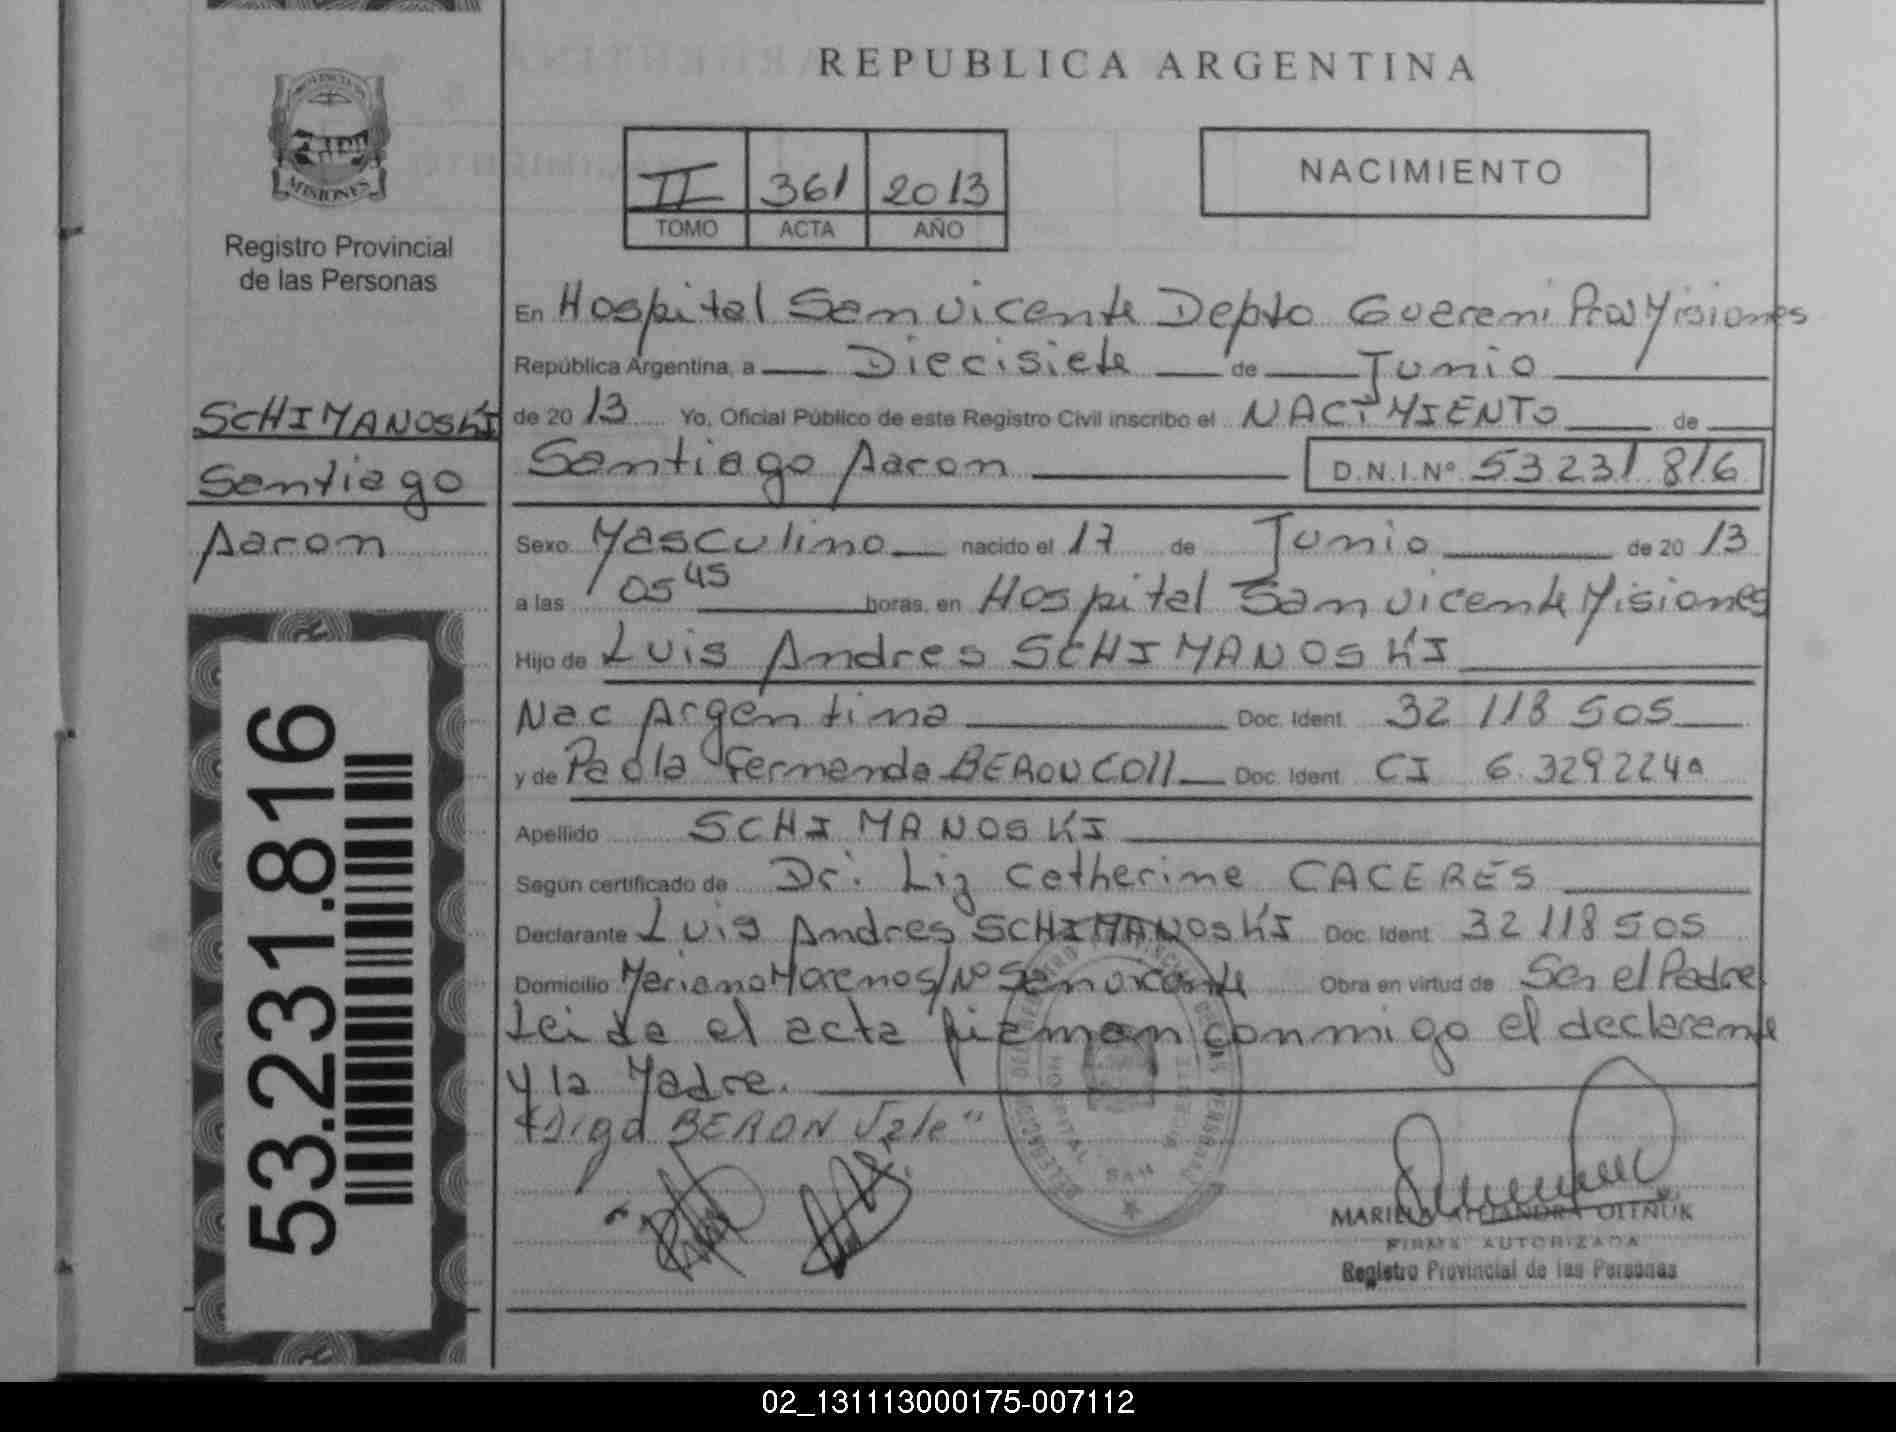 REPUBLICA ARGENTINA
PROVINCIA DE
MISIONES
Registro Provincial
de las Personas
II 361 2013
TOMO ACTA AÑO
NACIMIENTO
SCHIMANOSKI
Santiago
Aaron
53.231.816
En Hospital San vicente Depto Guarani Prov Misiones
República Argentina, a Diecisiete de Junio
de 20 13 Yo, Oficial Público de este Registro Civil inscribo el NACIMIENTO de
Santiago Aaron D.N.I.Nº 53231816
Sexo Masculino nacido el 17 de Junio de 20 13
a las 05 45 horas, en Hospital San vicente Misiones
Hijo de Luis Andres SCHIMANOSKI
Nac Argentina Doc. Ident. 32 118 505
y de Paola Fernanda BEROUCOll Doc. Ident. CI 6.329224
Apellido SCHIMANOSKI
Según certificado de Dr: Liz Catherine CACERES
Declarante Luis Andres SCHIMANOSKI Doc. Ident. 32 118 505
Domicilio Mariano Moreno S/Nº San vicente Obra en virtud de Ser el Padre
Leida el acta firman conmigo el declarante
y la Madre.
"Digo BERON Vale"
HOSPITAL SAN VICENTE
MARIELA ALEJANDRA OLINUK
FIRMA AUTORIZADA
Registro Provincial de las Personas
02_131113000175-007112